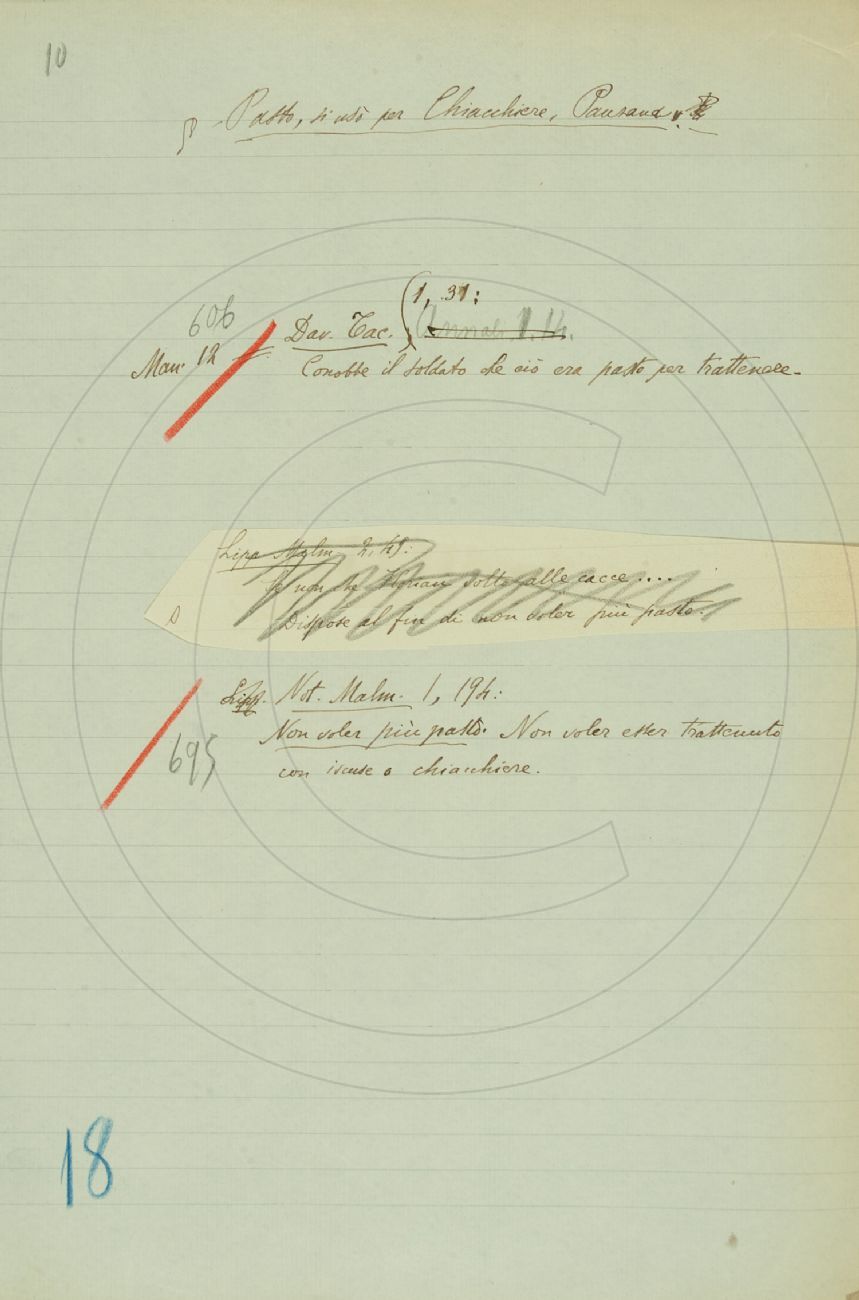 10
§ Pasto, si usò per Chiacchiere,
606
1, 31:
Dav. Tac. Annal. 1. 14.
Man. 12
Conobbe il soldato che ciò era pasto per trattenere.
Lipp. Malm. 2, 48:
Se non che volta alle cacce....
Dispose al fin di non voler più pasto.
Lipp. Not. Malm. 1, 194:
Non voler più pasto. Non voler esser trattenuto
695
con iscuse o chiacchiere.
18